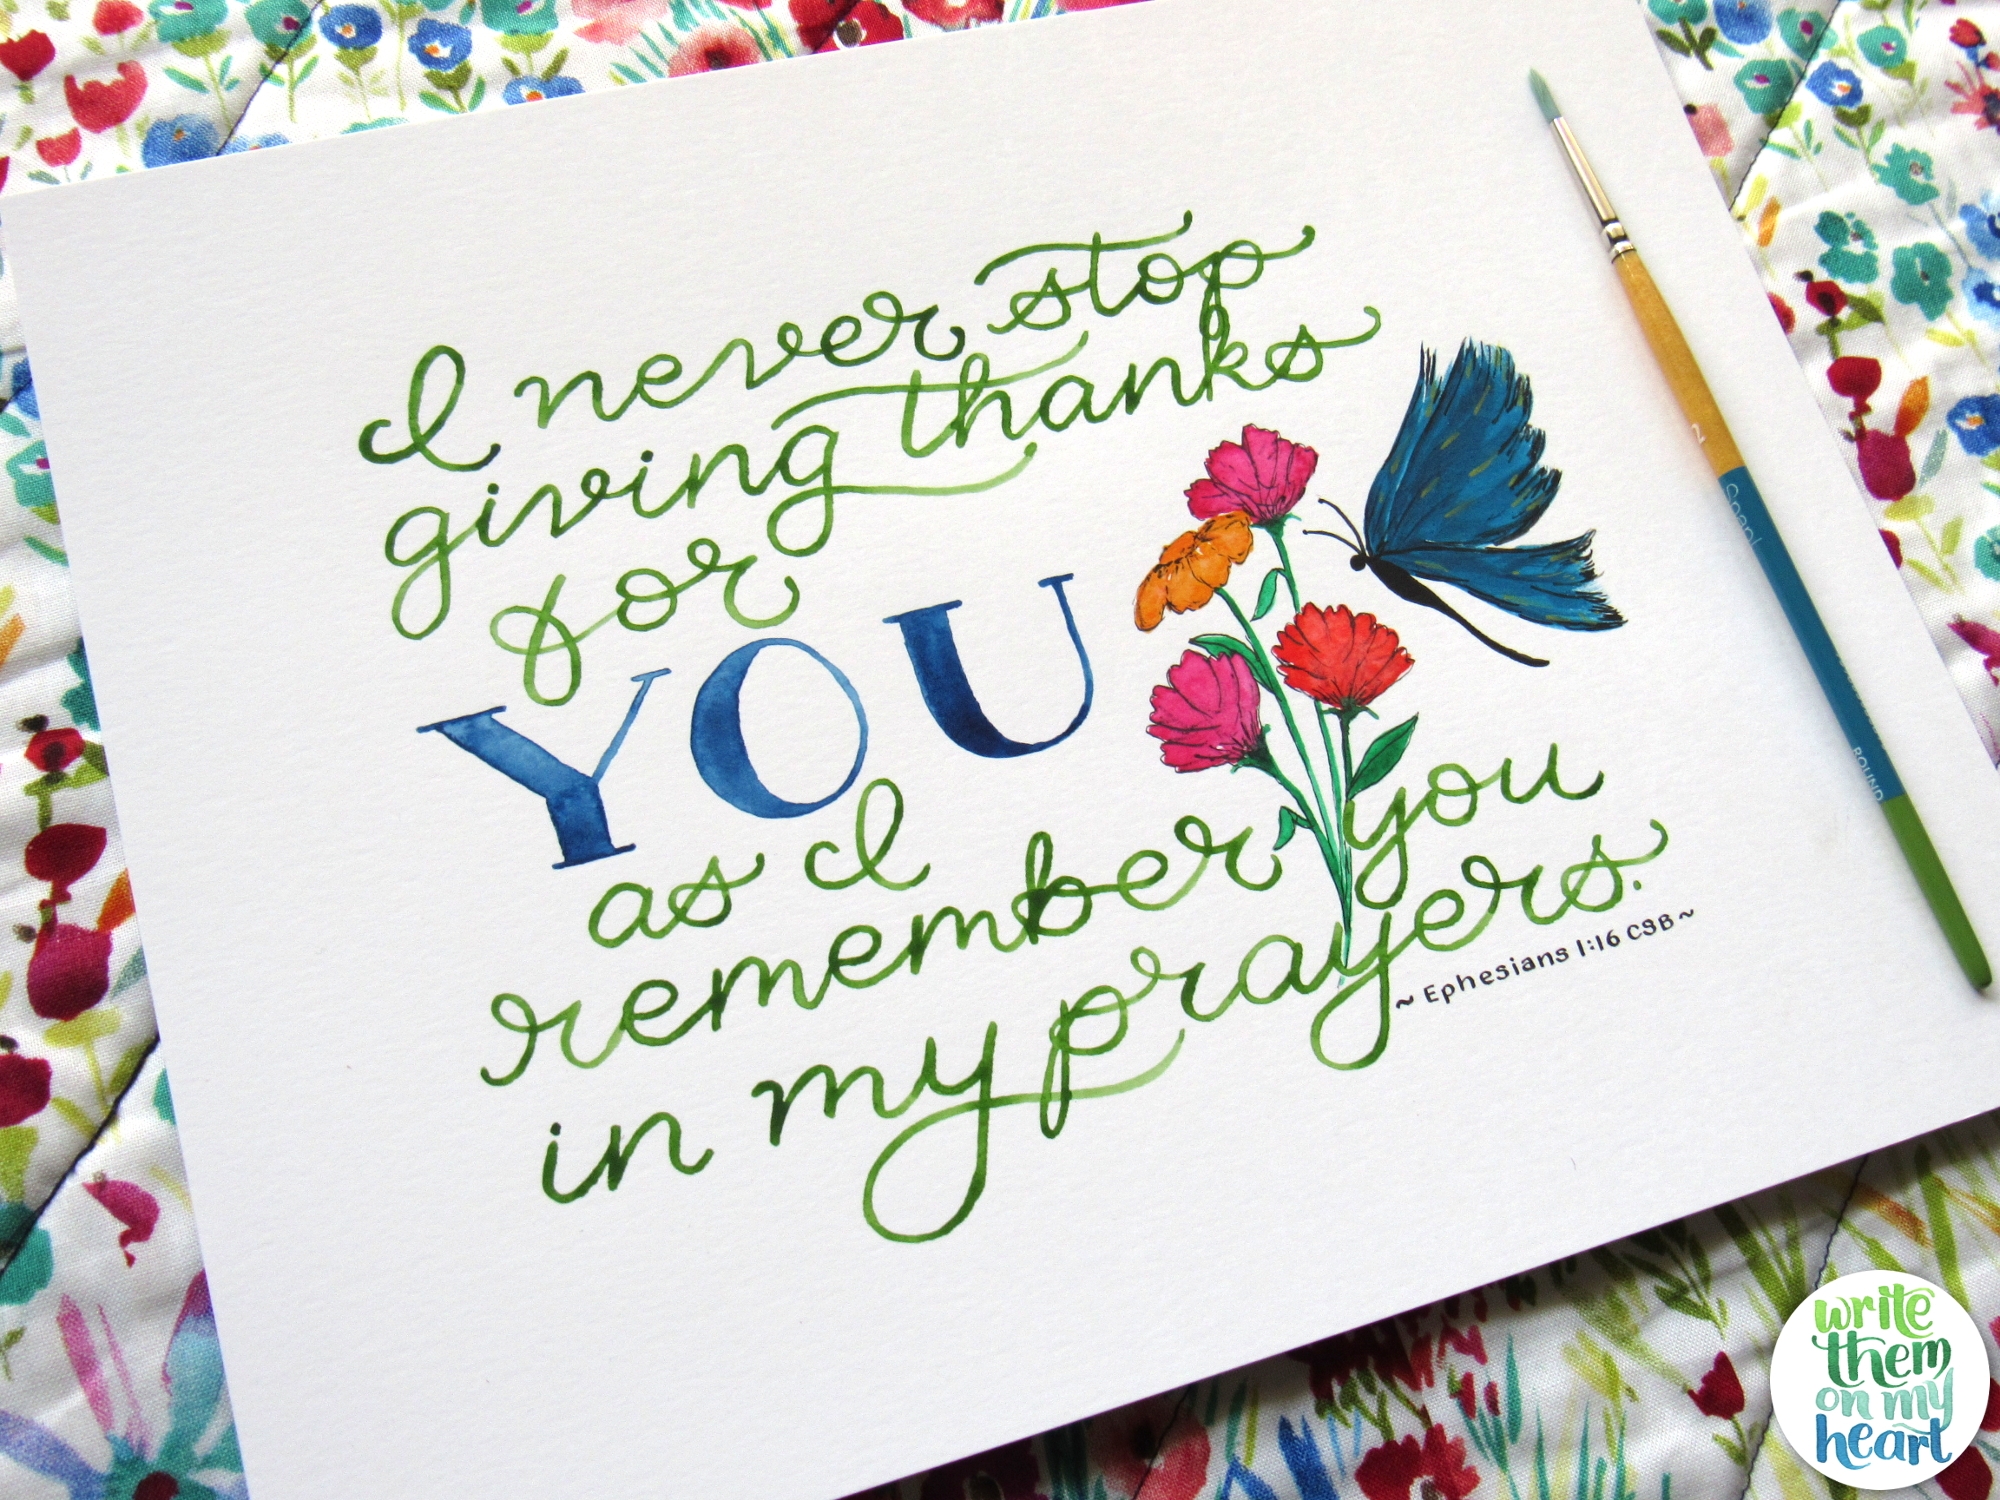 I never stop
giving thanks
for
YOU
as I
remember you
in my prayers.
~ Ephesians 1:16 CSB ~
2
ROUND
write
them
on my
heart